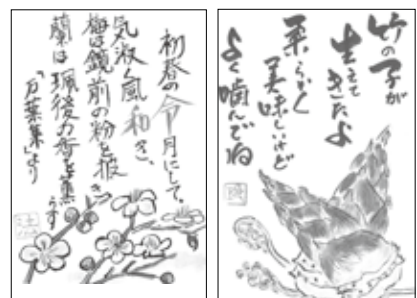 初春の令月にして、
気淑く風和ぎ、
梅は鏡前の粉を披き
蘭は珮後の香を薫らす
「万葉集」より
竹の子が
生えて
きたよ
柔らかく
美味しいけど
よく噛んでね